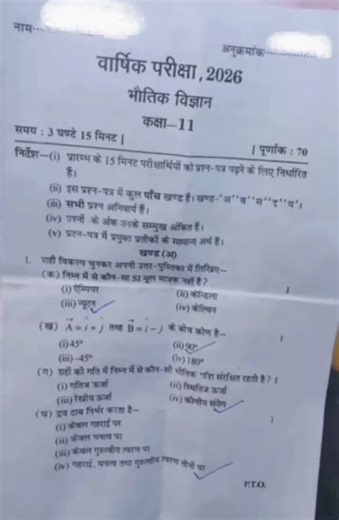 नाम
अनुक्रमांक
वार्षिक परीक्षा, 2026
भौतिक विज्ञान
कक्षा–11
समय : 3 घण्टे 15 मिनट | | पूर्णांक : 70
निर्देश—(i) प्रारम्भ के 15 मिनट परीक्षार्थियों को प्रश्न-पत्र पढ़ने के लिए निर्धारित
हैं।
(ii) इस प्रश्न-पत्र में कुल पाँच खण्ड हैं। खण्ड-'अ' 'ब' 'स' 'द' 'य'।
(iii) सभी प्रश्न अनिवार्य हैं।
(iv) प्रश्नों के अंक उनके सम्मुख अंकित हैं।
(v) प्रश्न-पत्र में प्रयुक्त प्रतीकों के सामान्य अर्थ हैं।
खण्ड (अ)
1. सही विकल्प चुनकर अपनी उत्तर-पुस्तिका में लिखिए—
(क) निम्न में से कौन-सा SI मूल मात्रक नहीं है? 1
(i) ऐम्पियर (ii) कैन्डिला
(iii) न्यूटन (iv) केल्विन
(ख) A = i + j तथा B = i – j के बीच कोण है– 1
(i) 45° (ii) 90°
(iii) –45° (iv) 180°
(ग) ग्रहों की गति में निम्न में से कौन-सी भौतिक राशि संरक्षित रहती है? 1
(i) गतिज ऊर्जा (ii) स्थितिज ऊर्जा
(iii) रेखीय ऊर्जा (iv) कोणीय संवेग
(घ) द्रव दाब निर्भर करता है– 1
(i) केवल गहराई पर
(ii) केवल घनत्व पर
(iii) केवल गुरुत्वीय त्वरण पर
(iv) गहराई, घनत्व तथा गुरुत्वीय त्वरण तीनों पर
P.T.O.